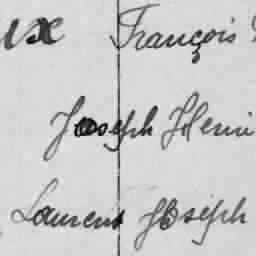 ux François
Joseph Henri
Laurent Joseph